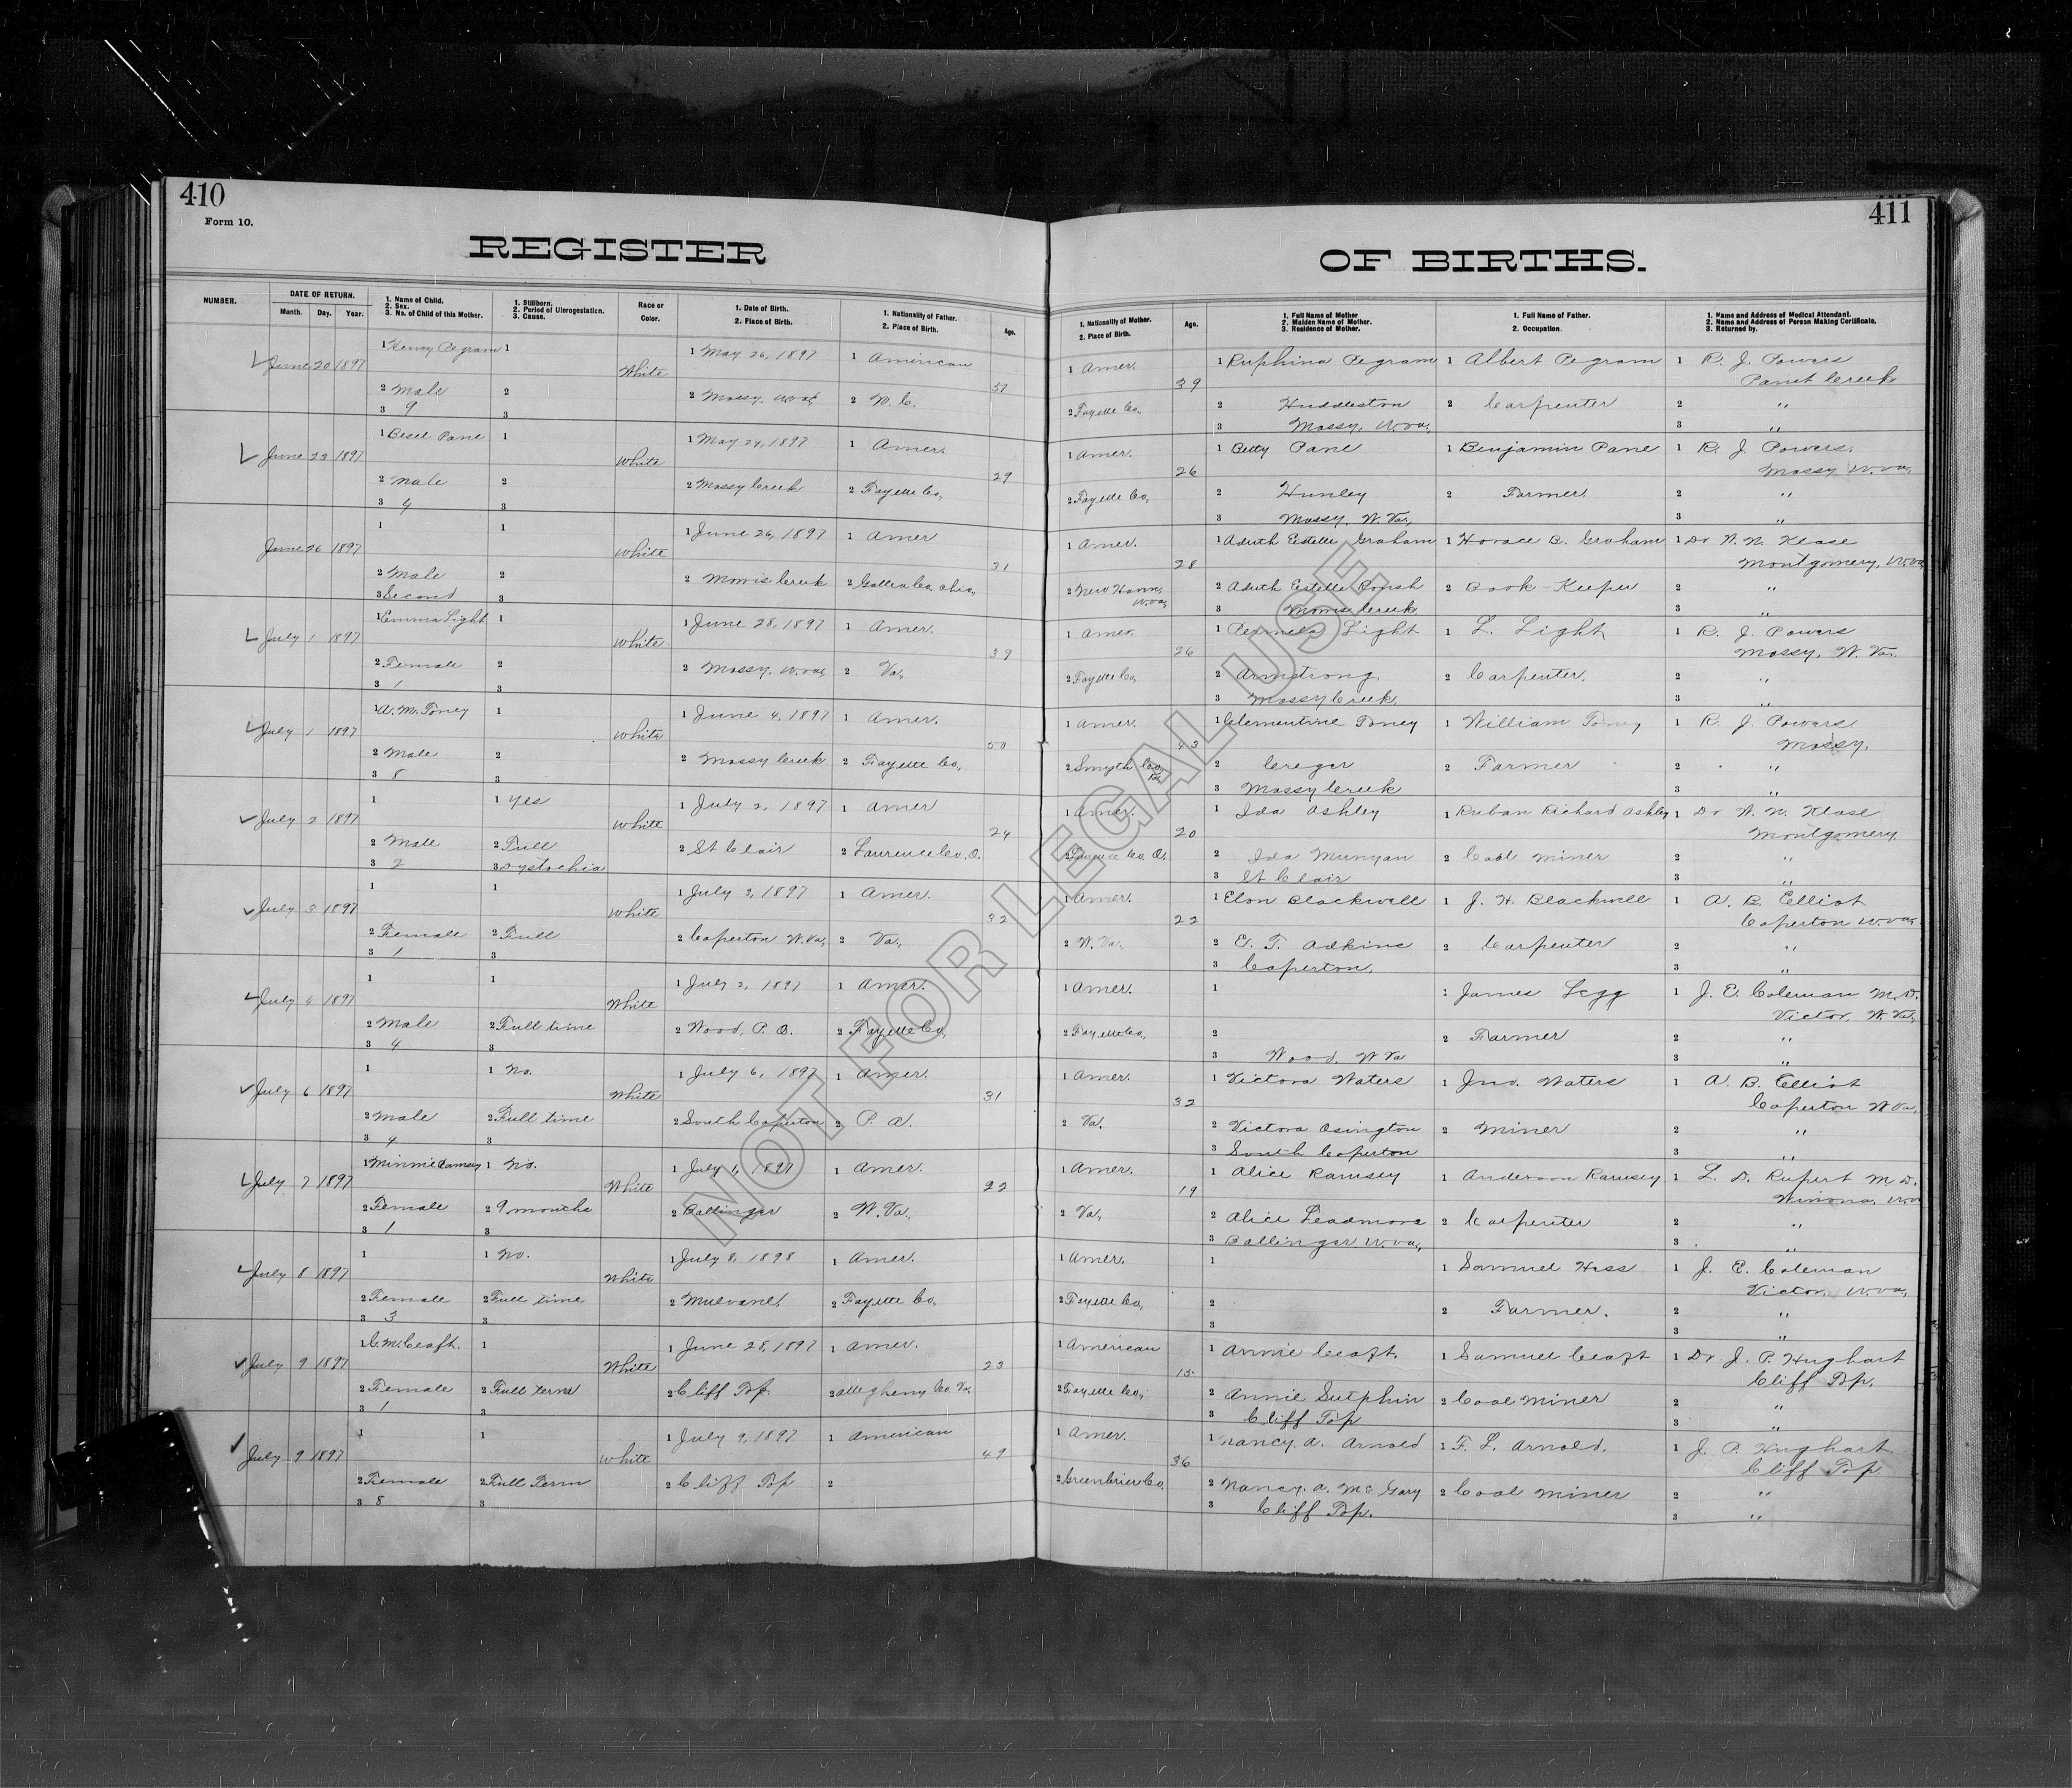 410
Form 10.
REGISTER
NUMBER.
DATE OF RETURN.
Month. Day. Year.
1. Name of Child.
2. Sex.
3. No. of Child of this Mother.
1. Stillborn.
2. Period of Uterogestation.
3. Cause.
Race or Color.
1. Date of Birth.
2. Place of Birth.
1. Nationality of Father.
2. Place of Birth.
Age.
June 20 1897 1 Henry Pegram 1 White 1 May 26, 1897 1 American 51
2 Male 2 2 Mossy, W.Va, 2 N. C.
3 9 3
June 23 1897 1 Pane 1 White 1 May 24, 1897 1 Amer. 29
2 Male 2 2 Mossy Creek 2 Fayette Co,
3 4 3
June 26 1897 1 1 White 1 June 26, 1897 1 Amer 31
2 Male 2 2 Morris Creek 2 Gallia Co, Ohio,
3 Second 3
July 1 1897 1 Emma Light 1 White 1 June 28, 1897 1 Amer. 39
2 Female 2 2 Mossy, W.Va, 2 Va,
3 1 3
July 1 1897 1 A. M. Toney 1 White 1 June 4, 1897 1 Amer. 50
2 Male 2 2 Mossy Creek 2 Fayette Co,
3 8 3
July 2 1897 1 1 Yes White 1 July 2, 1897 1 Amer 24
2 Male 2 Full 2 St Clair 2 Laurence Co, O.
3 2 3 Dystochia
July 3 1897 1 1 White 1 July 3, 1897 1 Amer. 32
2 Female 2 Full 2 Caperton W.Va, 2 Va,
3 1 3
July 4 1897 1 1 White 1 July 2, 1897 1 Amer.
2 Male 2 Full time 2 Wood, P. O. 2 Fayette Co,
3 4 3
July 6 1897 1 1 No. White 1 July 6, 1897 1 Amer. 31
2 Male 2 Full time 2 South Caperton 2 P. A.
3 4 3
July 7 1897 1 Minnie Ramsey 1 No. White 1 July 1, 1897 1 Amer. 22
2 Female 2 9 months 2 Ballinger 2 W. Va,
3 1 3
July 8 1897 1 1 No. White 1 July 8, 1898 1 Amer.
2 Female 2 Full time 2 2 Fayette Co,
3 3 3
July 9 1897 1 1 White 1 June 28, 1897 1 Amer. 23
2 Female 2 Full term 2 Cliff Top 2 Allegheny Co. Va,
3 1 3
July 9 1897 1 1 White 1 July 9, 1897 1 American 49
2 Female 2 Full Term 2 Cliff Top 2
3 8 3
411
OF BIRTHS.
1. Nationality of Mother.
2. Place of Birth.
Age.
1. Full Name of Mother
2. Maiden Name of Mother.
3. Residence of Mother.
1. Full Name of Father.
2. Occupation.
1. Name and Address of Medical Attendant.
2. Name and Address of Person Making Certificate.
3. Returned by.
1 Amer. 39 1 Ruphina Pegram 1 Albert Pegram 1 R. J. Powers
Paint Creek
2 Fayette Co, 2 Huddleston 2 Carpenter 2 "
3 Mossy, W.Va, 3 "
1 Amer. 26 1 Betty Pane 1 Benjamin Pane 1 R. J. Powers,
Mossy W.Va,
2 Fayette Co, 2 Hunley 2 Farmer. 2 "
3 Mossy, W. Va, 3 "
1 Amer. 28 1 Estelle Graham 1 Horace B. Graham 1 Dr W. N. Klase
Montgomery, W.Va
2 New Haven, W.Va, 2 Estelle Roush 2 Book-Keeper 2 "
3 Morris Creek 3 "
1 Amer. 26 1 Light 1 L. Light 1 R. J. Powers
Mossy, W. Va.
2 Fayette Co, 2 Armstrong. 2 Carpenter. 2 "
3 Mossy Creek. 3 "
1 Amer. 43 1 Clementine Toney 1 William Toney 1 R. J. Powers,
Mossy,
2 Smyth Co, Va, 2 Cregar 2 Farmer 2 "
3 Mossy Creek 3 "
1 Amer. 20 1 Ida Ashley 1 Ruban Richard Ashley 1 Dr W. N. Klase
Montgomery,
2 Laurence Co, O. 2 Ida Munyan 2 Coal Miner 2 "
3 St Clair 3 "
1 Amer. 22 1 Elon Blackwell 1 J. H. Blackwell 1 A. B. Elliot
Caperton W.Va,
2 W. Va, 2 E. T. Adkins 2 Carpenter 2 "
3 Caperton, 3 "
1 Amer. 1 1 James Legg 1 J. E. Coleman M.D.
Victor, W. Va,
2 Fayette Co, 2 2 Farmer 2 "
3 Wood, W Va 3 "
1 Amer. 32 1 Victora Waters 1 Jno. Waters 1 A. B. Elliot
Caperton W Va,
2 Va. 2 Victora Osington 2 Miner 2 "
3 South Caperton 3 "
1 Amer. 19 1 Alice Ramsey 1 Anderson Ramsey 1 L. D. Rupert M.D.
Winona, W.Va
2 Va, 2 Alice Leadmora 2 Carpenter 2 "
3 Ballinger W.Va, 3 "
1 Amer. 1 1 Samuel Hess 1 J. E. Coleman
Victor, W.Va,
2 Fayette Co, 2 2 Farmer. 2 "
3 3 "
1 American 15 1 Annie 1 Samuel 1 Dr J. P. Hughart
Cliff Top.
2 Fayette Co, 2 Annie Sutphin 2 Coal Miner 2 "
3 Cliff Top 3 "
1 Amer. 36 1 Nancy. A. Arnold 1 F. L. Arnold. 1 J. P. Hughart.
Cliff Top
2 Greenbrier Co, 2 Nancy. A. McGary 2 Coal Miner 2 "
3 Cliff Top. 3 "
NOT FOR LEGAL USE